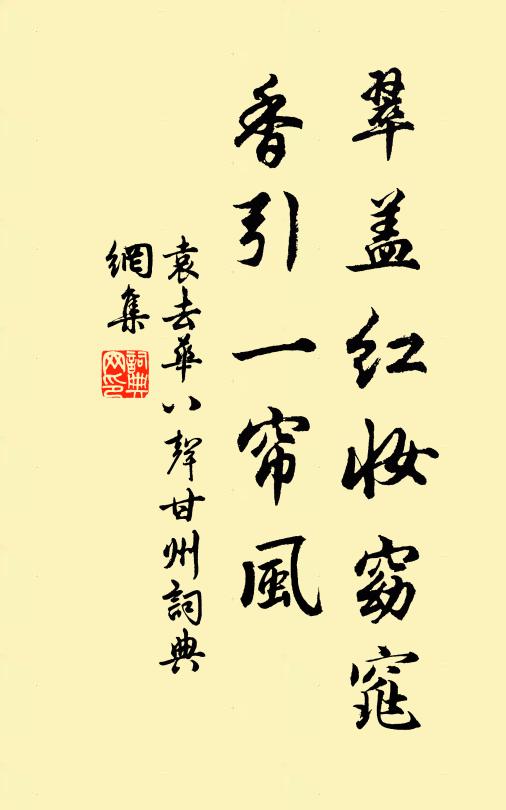 翠盖红妆窈窕
香引一帘風
袁去華八聲甘州詞典
網集
詞典
网印